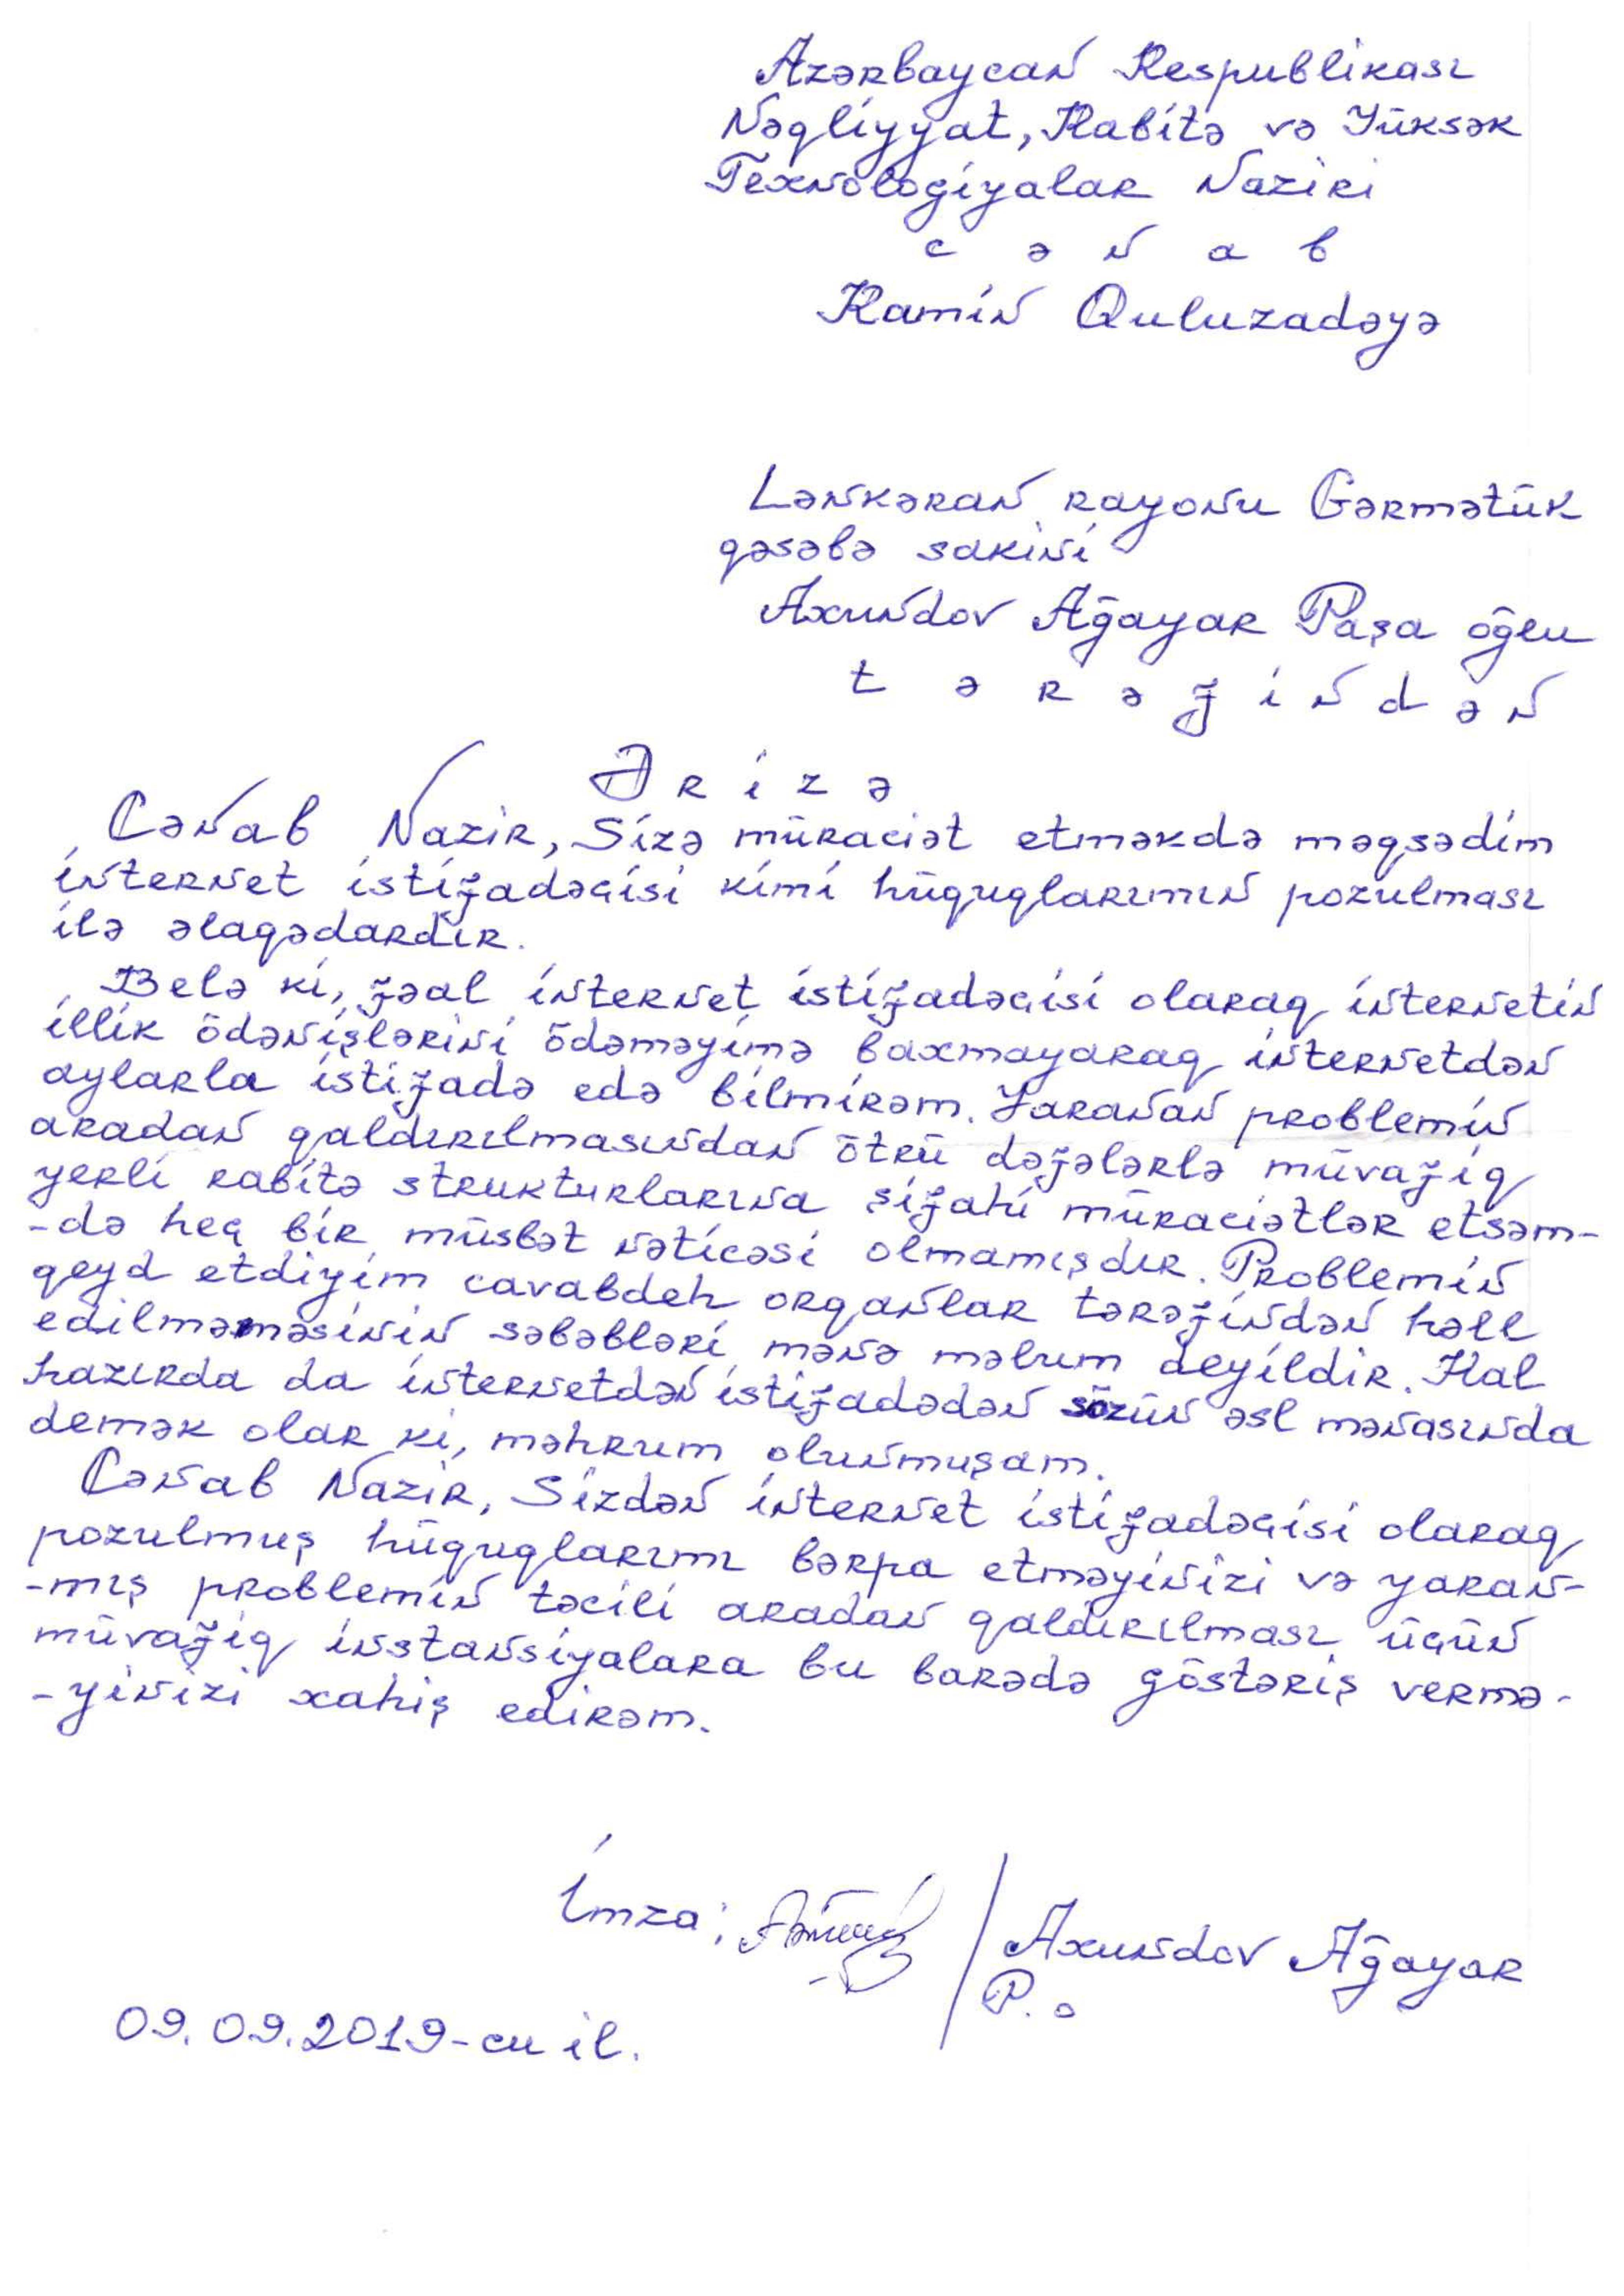 Azərbaycan Respublikası
Nəqliyyat, Rabitə və Yüksək
Texnologiyalar Naziri
c ə n a b
Ramin Quluzadəyə
Lənkəran rayonu Gərmətük
qəsəbə sakini
Axundov Ağayar Paşa oğlu
t ə r ə f i n d ə n
Ə r i z ə
Cənab Nazir, Sizə müraciət etməkdə məqsədim
internet istifadəçisi kimi hüquqlarımın pozulması
ilə əlaqədardır.
Belə ki, fəal internet istifadəçisi olaraq internetin
illik ödənişlərini ödəməyimə baxmayaraq internetdən
aylarla istifadə edə bilmirəm. Yaranan problemin
aradan qaldırılmasından ötrü dəfələrlə müvafiq
yerli rabitə strukturlarına şifahi müraciətlər etsəm-
-də heç bir müsbət nəticəsi olmamışdır. Problemin
qeyd etdiyim cavabdeh orqanlar tərəfindən həll
edilməməsinin səbəbləri mənə məlum deyildir. Hal
hazırda da internetdən istifadədən sözün əsl mənasında
demək olar ki, məhrum olunmuşam.
Cənab Nazir, Sizdən internet istifadəçisi olaraq
pozulmuş hüquqlarımı bərpa etməyinizi və yaran-
-mış problemin təcili aradan qaldırılması üçün
müvafiq instansiyalara bu barədə göstəriş vermə-
-yinizi xahiş edirəm.
İmza: / Axundov Ağayar
P. o
09.09.2019-cu il.